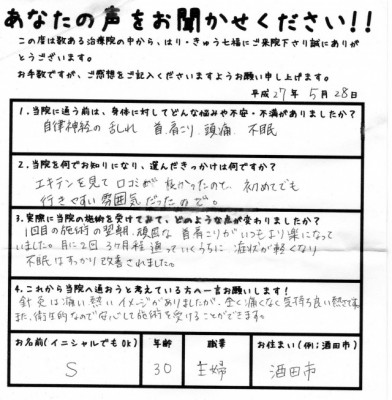 あなたの声をお聞かせください!!
この度は数ある治療院の中から、はり・きゅう七福にご来院下さり誠にありが
とうございます。
お手数ですが、ご感想をご記入くださいますようお願い申し上げます。
平成 27年 5月 28日
1.当院に通う前は、身体に対してどんな悩みや不安・不満がありましたか?
自律神経の乱れ 首、肩こり、頭痛、不眠
2.当院を何でお知りになり、選んだきっかけは何ですか?
エキテンを見て 口コミが良かったので、初めてでも
行きやすい雰囲気だったので。
3.実際に当院の施術を受けてみて、どのような声が変わりましたか?
1回目の施術の翌朝、頑固な首肩こりがいつもより楽になって
いました。月に2回 3ヶ月程通っていくうちに 症状が軽くなり
不眠はすっかり改善されました。
4.これから当院へ通おうと考えている方へ一言お願いします!
針灸は痛い熱いイメージがありましたが、全く痛くなく気持ち良い熱さです。
また、衛生的なので安心して施術を受けることができます。
お名前(イニシャルでもOK) 年齢 職業 お住まい(例:酒田市)
S 30 主婦 酒田市